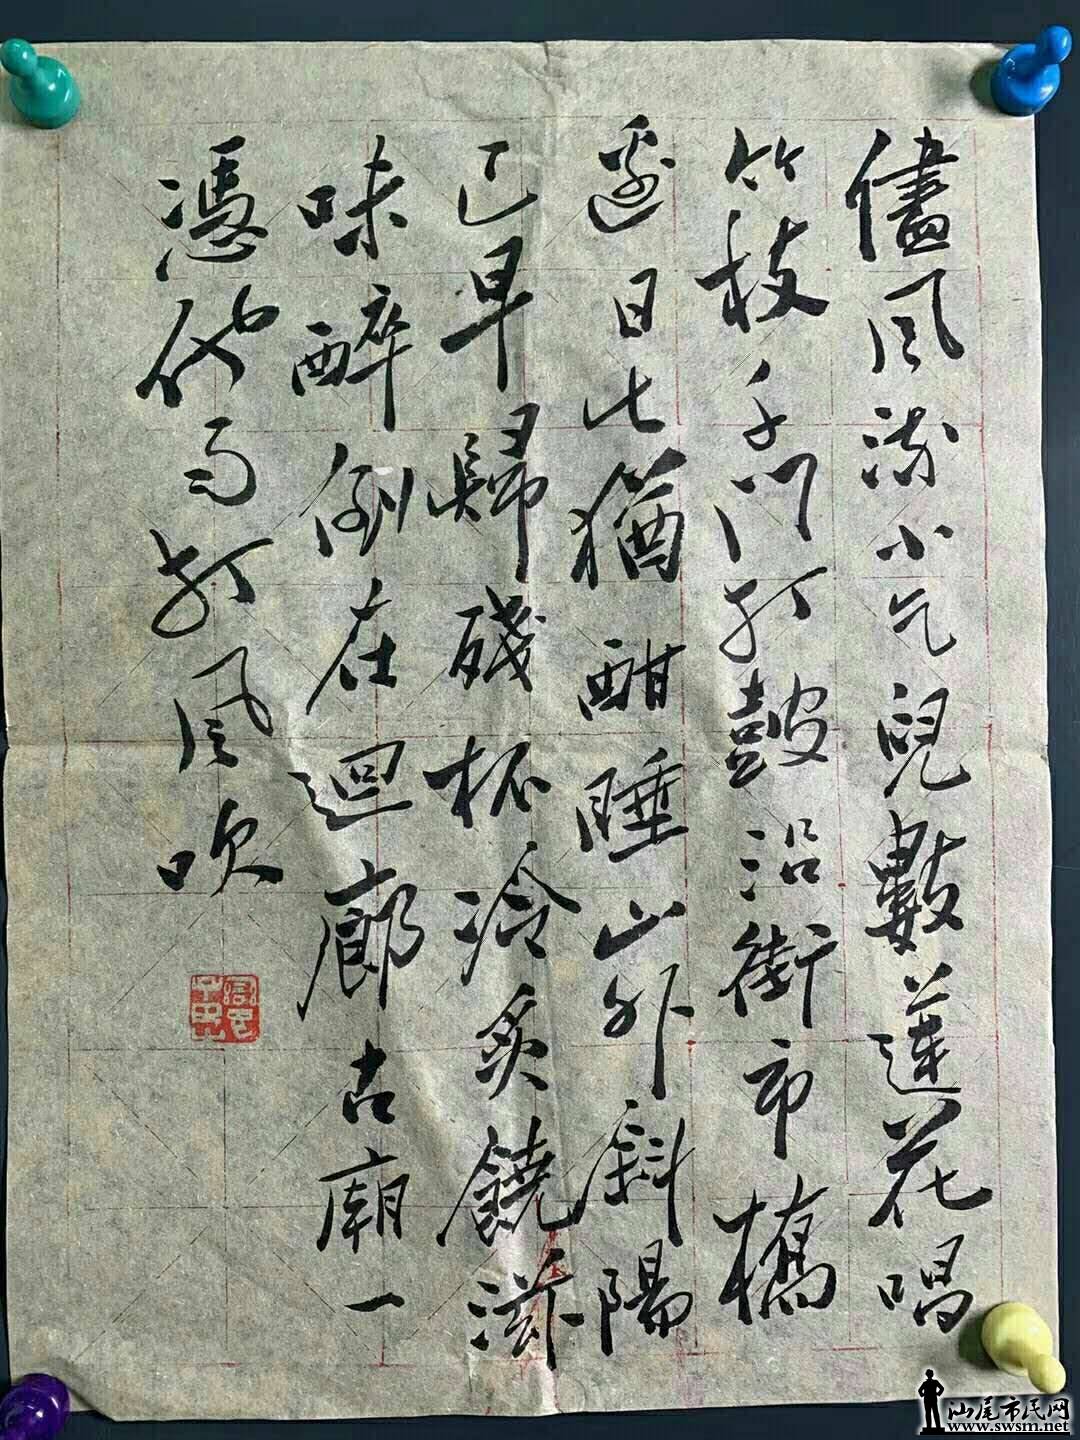 儘風流小乞兒數蓮花唱
竹枝千門打鼓沿街市橋
邊日出猶酣睡山外斜陽
已早歸殘杯冷炙饒滋
味醉倒在迴廊古廟一
憑他雨打風吹
汕尾市民网
www.swsm.net